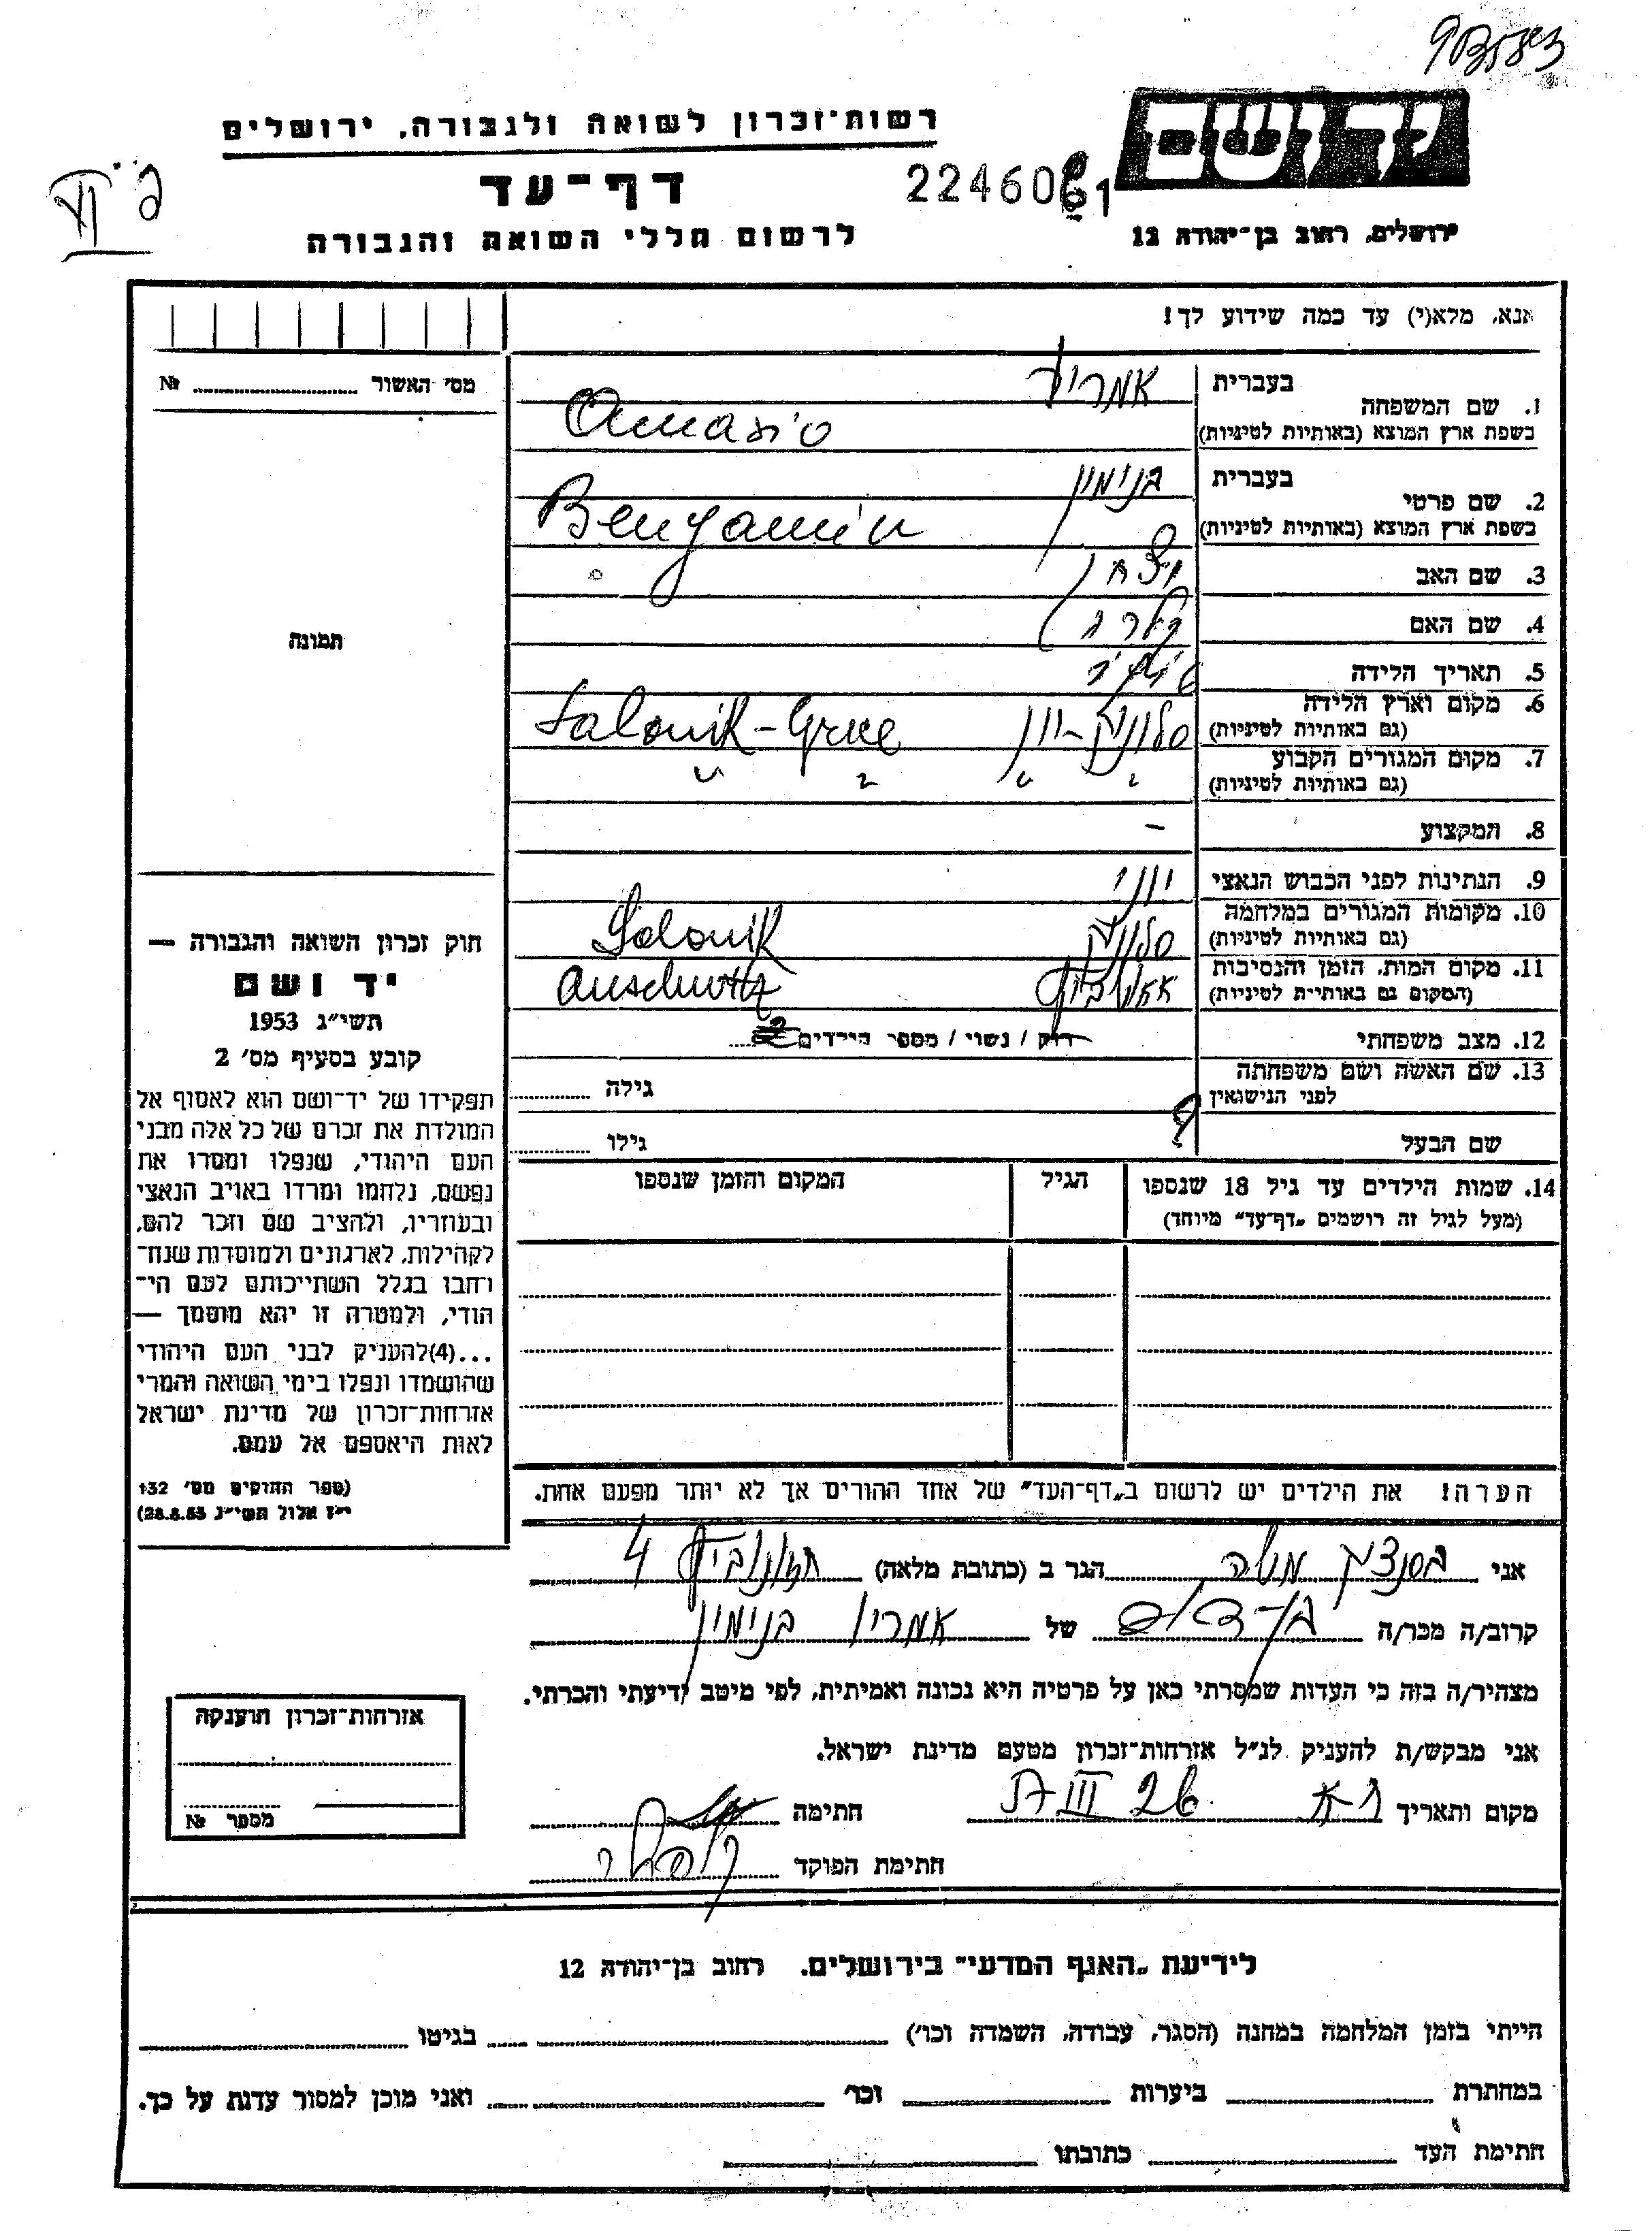 רשות־זכרון לשואה ולגבורה, ירושלים
יד ושם
דף־עד
224606 1
לרשום חללי השואה והגבורה
ירושלים, רחוב בן־יהודה 12
אנא, מלא(י) עד כמה שידוע לך!
מס׳ האשור № 
בעברית
1. שם המשפחה
בשפת ארץ המוצא (באותיות לטיניות)
בעברית בנימין
2. שם פרטי
בשפת ארץ המוצא (באותיות לטיניות) Benyamin
3. שם האב
4. שם האם
תמונה
5. תאריך הלידה
6. מקום וארץ הלידה
(גם באותיות לטיניות) סלוניק-יוון Salonik-Grece
7. מקום המגורים הקבוע
(גם באותיות לטיניות) " " " "
8. המקצוע –
9. הנתינות לפני הכבוש הנאצי יווני
10. מקומות המגורים במלחמה
(גם באותיות לטיניות) סלוניק Salonik
11. מקום המות, הזמן והנסיבות
(המקום גם באותיות לטיניות) אאושביץ Auschwitz
12. מצב משפחתי רוק / נשוי / מספר הילדים
13. שם האשה ושם משפחתה
לפני הנישואין גילה
שם הבעל גילו
14. שמות הילדים עד גיל 18 שנספו הגיל המקום והזמן שנספו
(מעל לגיל זה רושמים „דף־עד״ מיוחד)
הערה! את הילדים יש לרשום ב„דף־העד״ של אחד ההורים אך לא יותר מפעם אחת.
חוק זכרון השואה והגבורה —
יד ושם
תשי״ג 1953
קובע בסעיף מס׳ 2
תפקידו של יד־ושם הוא לאסוף אל
המולדת את זכרם של כל אלה מבני
העם היהודי, שנפלו ומסרו את
נפשם, נלחמו ומרדו באויב הנאצי
ובעוזריו, ולהציב שם וזכר להם,
לקהילות, לארגונים ולמוסדות שנח־
רבו בגלל השתייכותם לעם הי־
הודי, ולמטרה זו יהא מוסמך —
...(4)להעניק לבני העם היהודי
שהושמדו ונפלו בימי השואה והמרי
אזרחות־זכרון של מדינת ישראל
לאות היאספם אל עמם.
(ספר החוקים מס׳ 132
י״ז אלול תשי״ג 28.8.53)
אני משה הגר ב (כתובת מלאה) 4
קרוב/ה מכר/ה בן-דוד של בנימין
מצהיר/ה בזה כי העדות שמסרתי כאן על פרטיה היא נכונה ואמיתית, לפי מיטב ידיעתי והכרתי.
אני מבקש/ת להעניק לנ״ל אזרחות־זכרון מטעם מדינת ישראל.
מקום ותאריך ת-א 26 III חתימה
חתימת הפוקד
אזרחות־זכרון הוענקה
מספר №
לידיעת „האגף המדעי״ בירושלים. רחוב בן־יהודה 12
הייתי בזמן המלחמה במחנה (הסגר, עבודה, השמדה וכו׳) בגיטו
במחתרת ביערות וכו׳ ואני מוכן למסור עדות על כך.
חתימת העד כתובתו